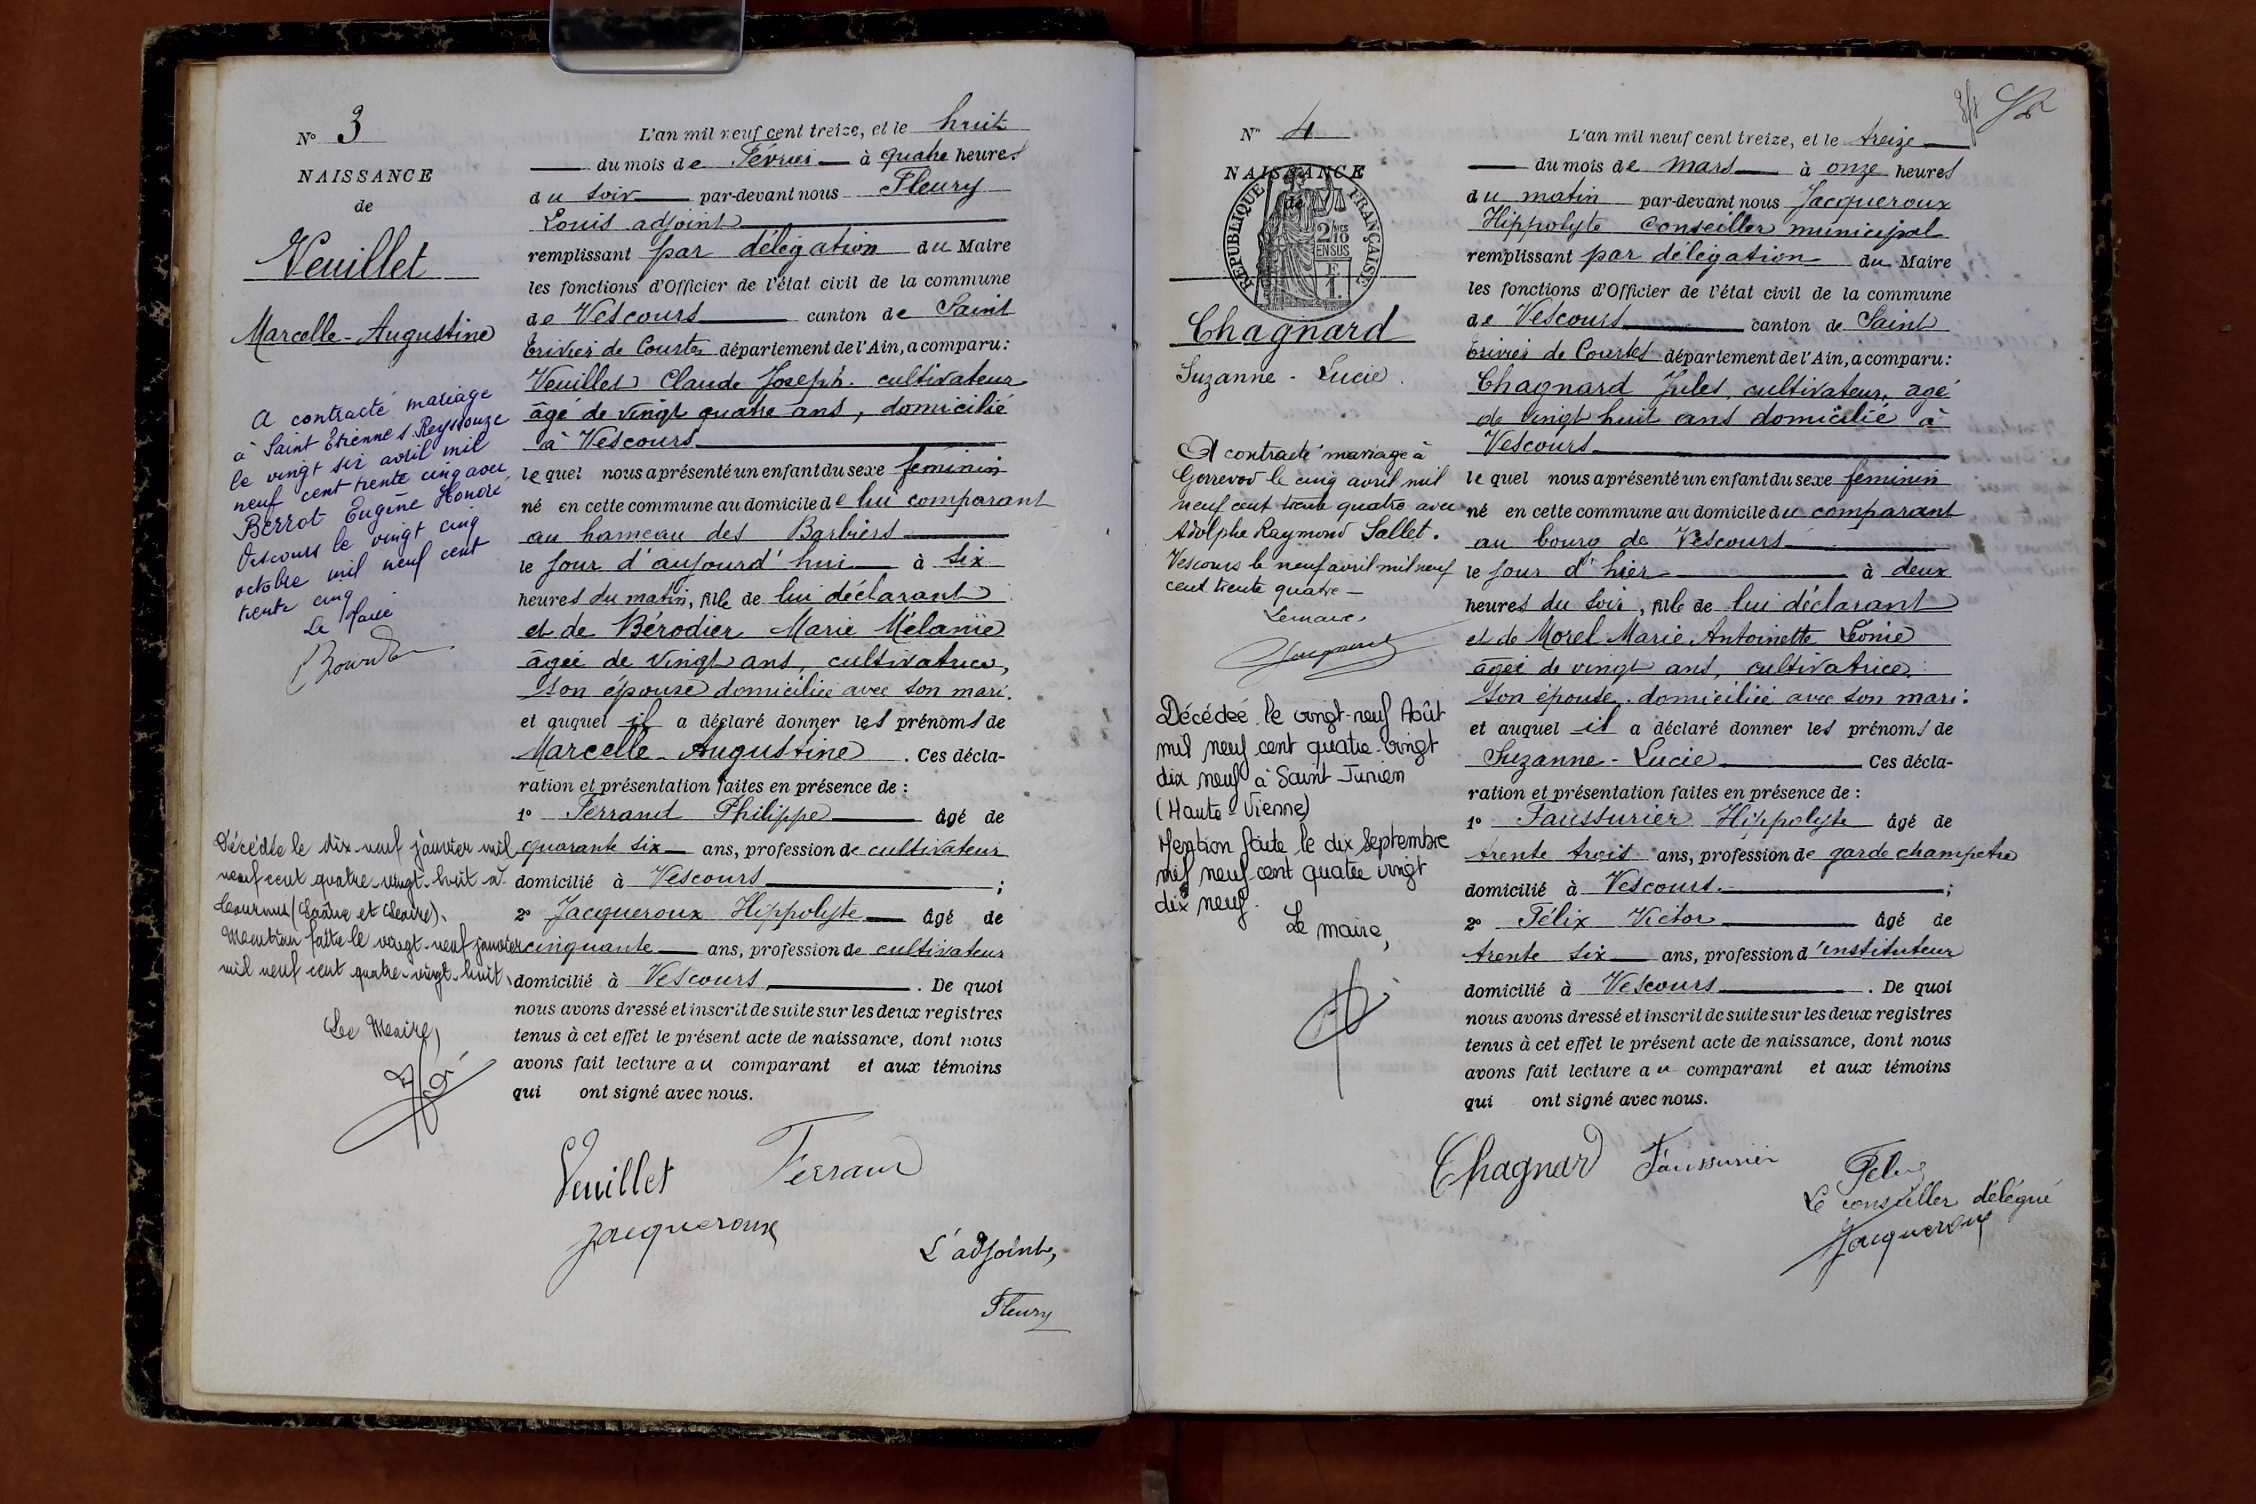 N° 3
NAISSANCE
de
Veuillet
Marcelle-Augustine
A contracté mariage
à Saint Etienne s/ Reyssouze
le vingt six avril mil
neuf cent trente cinq avec
Berrot Eugène Honoré
Vescours le vingt cinq
octobre mil neuf cent
trente cinq
Le Maire
Décédée le dix-neuf janvier mil
neuf cent quatre-vingt-huit à
Tournus (Saône et Loire).
Mention faite le vingt-neuf janvier
mil neuf cent quatre-vingt-huit.
Le Maire,
L'an mil neuf cent treize, et le huit
du mois de Février à quatre heures
du soir par-devant nous Fleury
Louis adjoint
remplissant par délégation du Maire
les fonctions d'Officier de l'état civil de la commune
de Vescours canton de Saint
Trivier de Courtes département de l'Ain, a comparu:
Veuillet Claude Joseph. cultivateur
âgé de vingt quatre ans, domicilié
à Vescours
lequel nous a présenté un enfant du sexe féminin
né en cette commune au domicile de lui comparant
au hameau des Barbiers
le jour d'aujourd'hui à six
heures du matin, fille de lui déclarant
et de Bérodier Marie Mélanie
âgée de vingt ans, cultivatrice,
son épouse domiciliée avec son mari.
et auquel il a déclaré donner les prénoms de
Marcelle-Augustine. Ces décla-
ration et présentation faites en présence de:
1° Ferrand Philippe âgé de
quarante six ans, profession de cultivateur
domicilié à Vescours ;
2° Jacqueroux Hippolyte âgé de
cinquante ans, profession de cultivateur
domicilié à Vescours. De quoi
nous avons dressé et inscrit de suite sur les deux registres
tenus à cet effet le présent acte de naissance, dont nous
avons fait lecture au comparant et aux témoins
qui ont signé avec nous.
Veuillet Ferrand
Jacqueroux
L'adjoint,
Fleury
N° 4
NAISSANCE
de
RÉPUBLIQUE FRANÇAISE
2/10 EN SUS
Chagnard
Suzanne-Lucie.
A contracté mariage à
Gorrevod le cinq avril mil
neuf cent trente quatre avec
Adolphe Raymond Sallet.
Vescours le neuf avril mil neuf
cent trente quatre
Le maire,
Décédée le vingt-neuf Août
mil neuf cent quatre-vingt
dix neuf à Saint-Junien
(Haute-Vienne)
Mention faite le dix Septembre
mil neuf cent quatre vingt
dix neuf.
Le maire,
L'an mil neuf cent treize, et le treize
du mois de Mars à onze heures
du matin par-devant nous Jacqueroux
Hippolyte Conseiller municipal
remplissant par délégation du Maire
les fonctions d'Officier de l'état civil de la commune
de Vescours canton de Saint
Trivier de Courtes département de l'Ain, a comparu:
Chagnard Jules, cultivateur, âgé
de vingt huit ans domicilié à
Vescours
lequel nous a présenté un enfant du sexe féminin
né en cette commune au domicile du comparant
au bourg de Vescours
le jour d'hier à deux
heures du soir, fille de lui déclarant
et de Morel Marie Antoinette Léonie
âgée de vingt ans, cultivatrice.
son épouse. domiciliée avec son mari:
et auquel il a déclaré donner les prénoms de
Suzanne-Lucie Ces décla-
ration et présentation faites en présence de:
1° Faussurier Hippolyte âgé de
trente trois ans, profession de garde champetre
domicilié à Vescours. ;
2° Félix Victor âgé de
trente six ans, profession d'instituteur
domicilié à Vescours. De quoi
nous avons dressé et inscrit de suite sur les deux registres
tenus à cet effet le présent acte de naissance, dont nous
avons fait lecture au comparant et aux témoins
qui ont signé avec nous.
Chagnard Faussurier
Félix
Le conseiller délégué
Jacqueroux